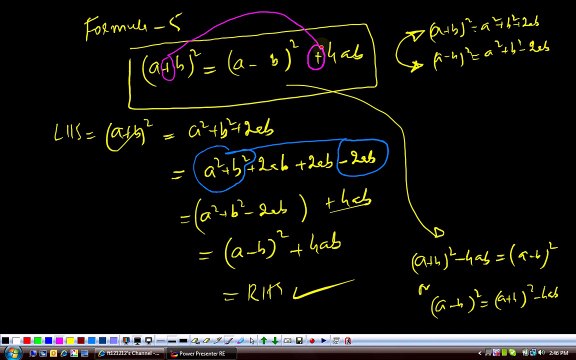 Formula - 5
(a+b)² = (a - b)² + 4ab
(a+b)² = a²+b²+2ab
(a-b)² = a²+b²-2ab
LHS = (a+b)² = a²+b²+2ab
= a²+b²+2ab+2ab-2ab
= (a²+b²-2ab) + 4ab
= (a-b)² + 4ab
= RHS
(a+b)²-4ab = (a-b)²
(a-b)² = (a+b)²-4ab
ft121212's Channel - ...
Power Presenter RE
2:46 PM